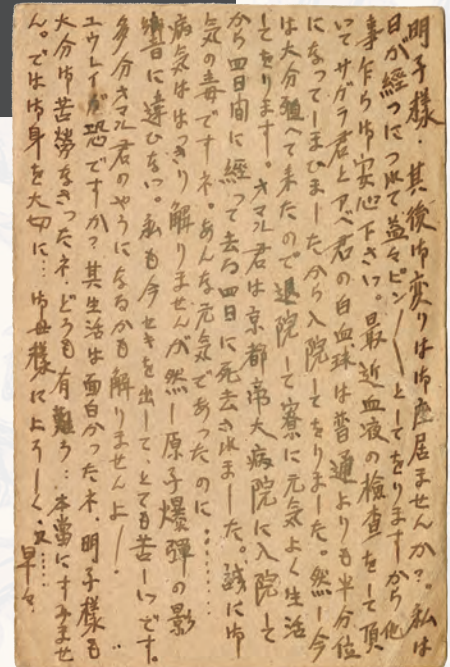 明子様．其後御変りは御座居ませんか？。私は
日が經つにつれて益々ピン〱としてをりますから他
事乍ら御安心下さい。最近血液の檢査をして頂
いてサガラ君とアベ君の白血球は普通よりも半分位
になってしまひましたから入院してをりました。然し今
は大分殖へて来たので退院して寮に元気よく生活
してをります。オマル君は京都帝大病院に入院して
から四日間に經って去る四日に死去されました。誠に御
気の毒ですネ。あんな元気であったのに………
病気ははっきり解りませんが然し原子爆彈の影
響に違ひない。私も今セキを出して、とても苦しいです。
多分オマル君のやうになるかも解りませんよ〡！
ユウレイが恐ですか？其生活は面白かったネ．明子様も
大分御苦勞なさったネ．どうも有難う‥本當にすみませ
ん。では御身を大切に…御母様によろしく．又……
早々